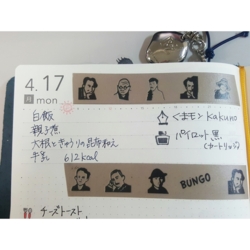 4.17
月 mon
白飯
親子煮
大根ときゅうりの昆布和え
牛乳 612kcal
くまモン kakuno
パイロット 黒
(カートリッジ)
BUNGO
チーズトースト